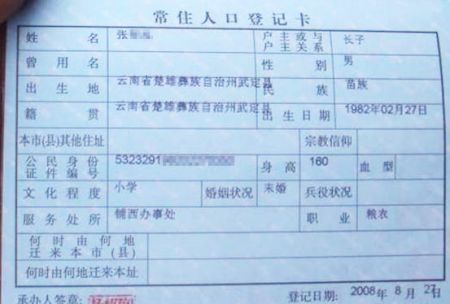 常住人口登记卡
姓名 张 户主或与户主关系 长子
曾用名 性别 男
出生地 云南省楚雄彝族自治州武定县 民族 苗族
籍贯 云南省楚雄彝族自治州武定县 出生日期 1982年02月27日
本市(县)其他住址 宗教信仰
公民身份证件编号 5323291 身高 160 血型
文化程度 小学 婚姻状况 未婚 兵役状况
服务处所 铺西办事处 职业 粮农
何时由何地迁来本市(县)
何时由何地迁来本址
承办人签章: 登记日期: 2008年8月27日